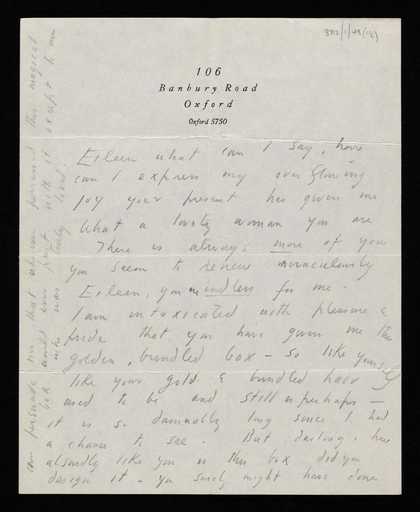 106
Banbury Road
Oxford
Oxford 5750
Eileen what can I say, how
can I express my overflowing
joy your present has given me
What a lovely woman you are
There is always more of you
you seem to renew miraculously
Eileen, you are endless for me.
I am intoxicated with pleasure &
pride that you have given me this
golden, brindled box – so like yourself
like your gold & brindled hair
used to be and still is perhaps –
it is so damnably long since I had
a chance to see. But darling, how
absurdly like you is this box did you
design it – you surely might have done
persuade me that whoever possessed this magical
box would ever part with it except to one
who was